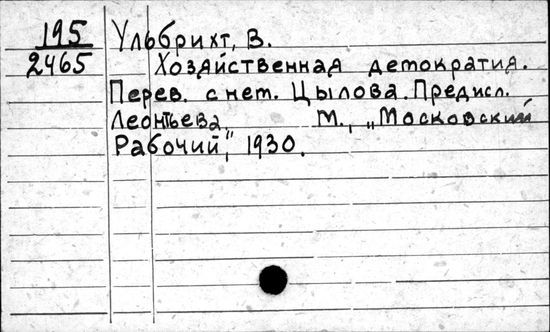 195 Ульбрихт, В.
2465 Хозяйственная демократия.
Перев. с нем. Цылова. Предисл.
Леонтьева М., „Московский
Рабочий", 1930.